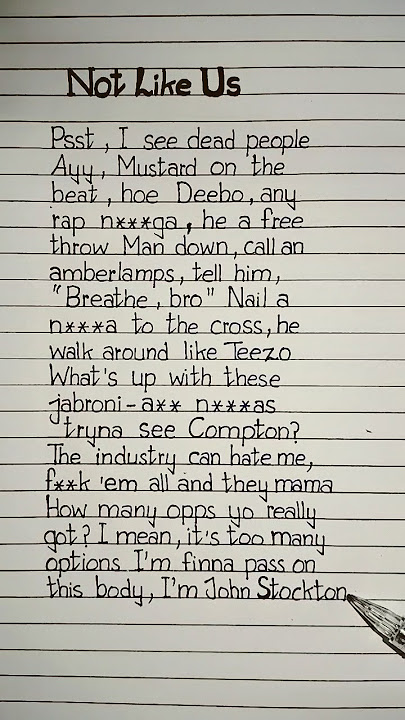 Not Like Us
Psst, I see dead people
Ayy, Mustard on the
beat, hoe Deebo, any
rap n***ga, he a free
throw Man down, call an
amberlamps, tell him,
"Breathe, bro" Nail a
n***a to the cross, he
walk around like Teezo
What's up with these
jabroni-a** n***as
tryna see Compton?
The industry can hate me,
f**k 'em all and they mama
How many opps yo really
got? I mean, it's too many
options I'm finna pass on
this body, I'm John Stockton